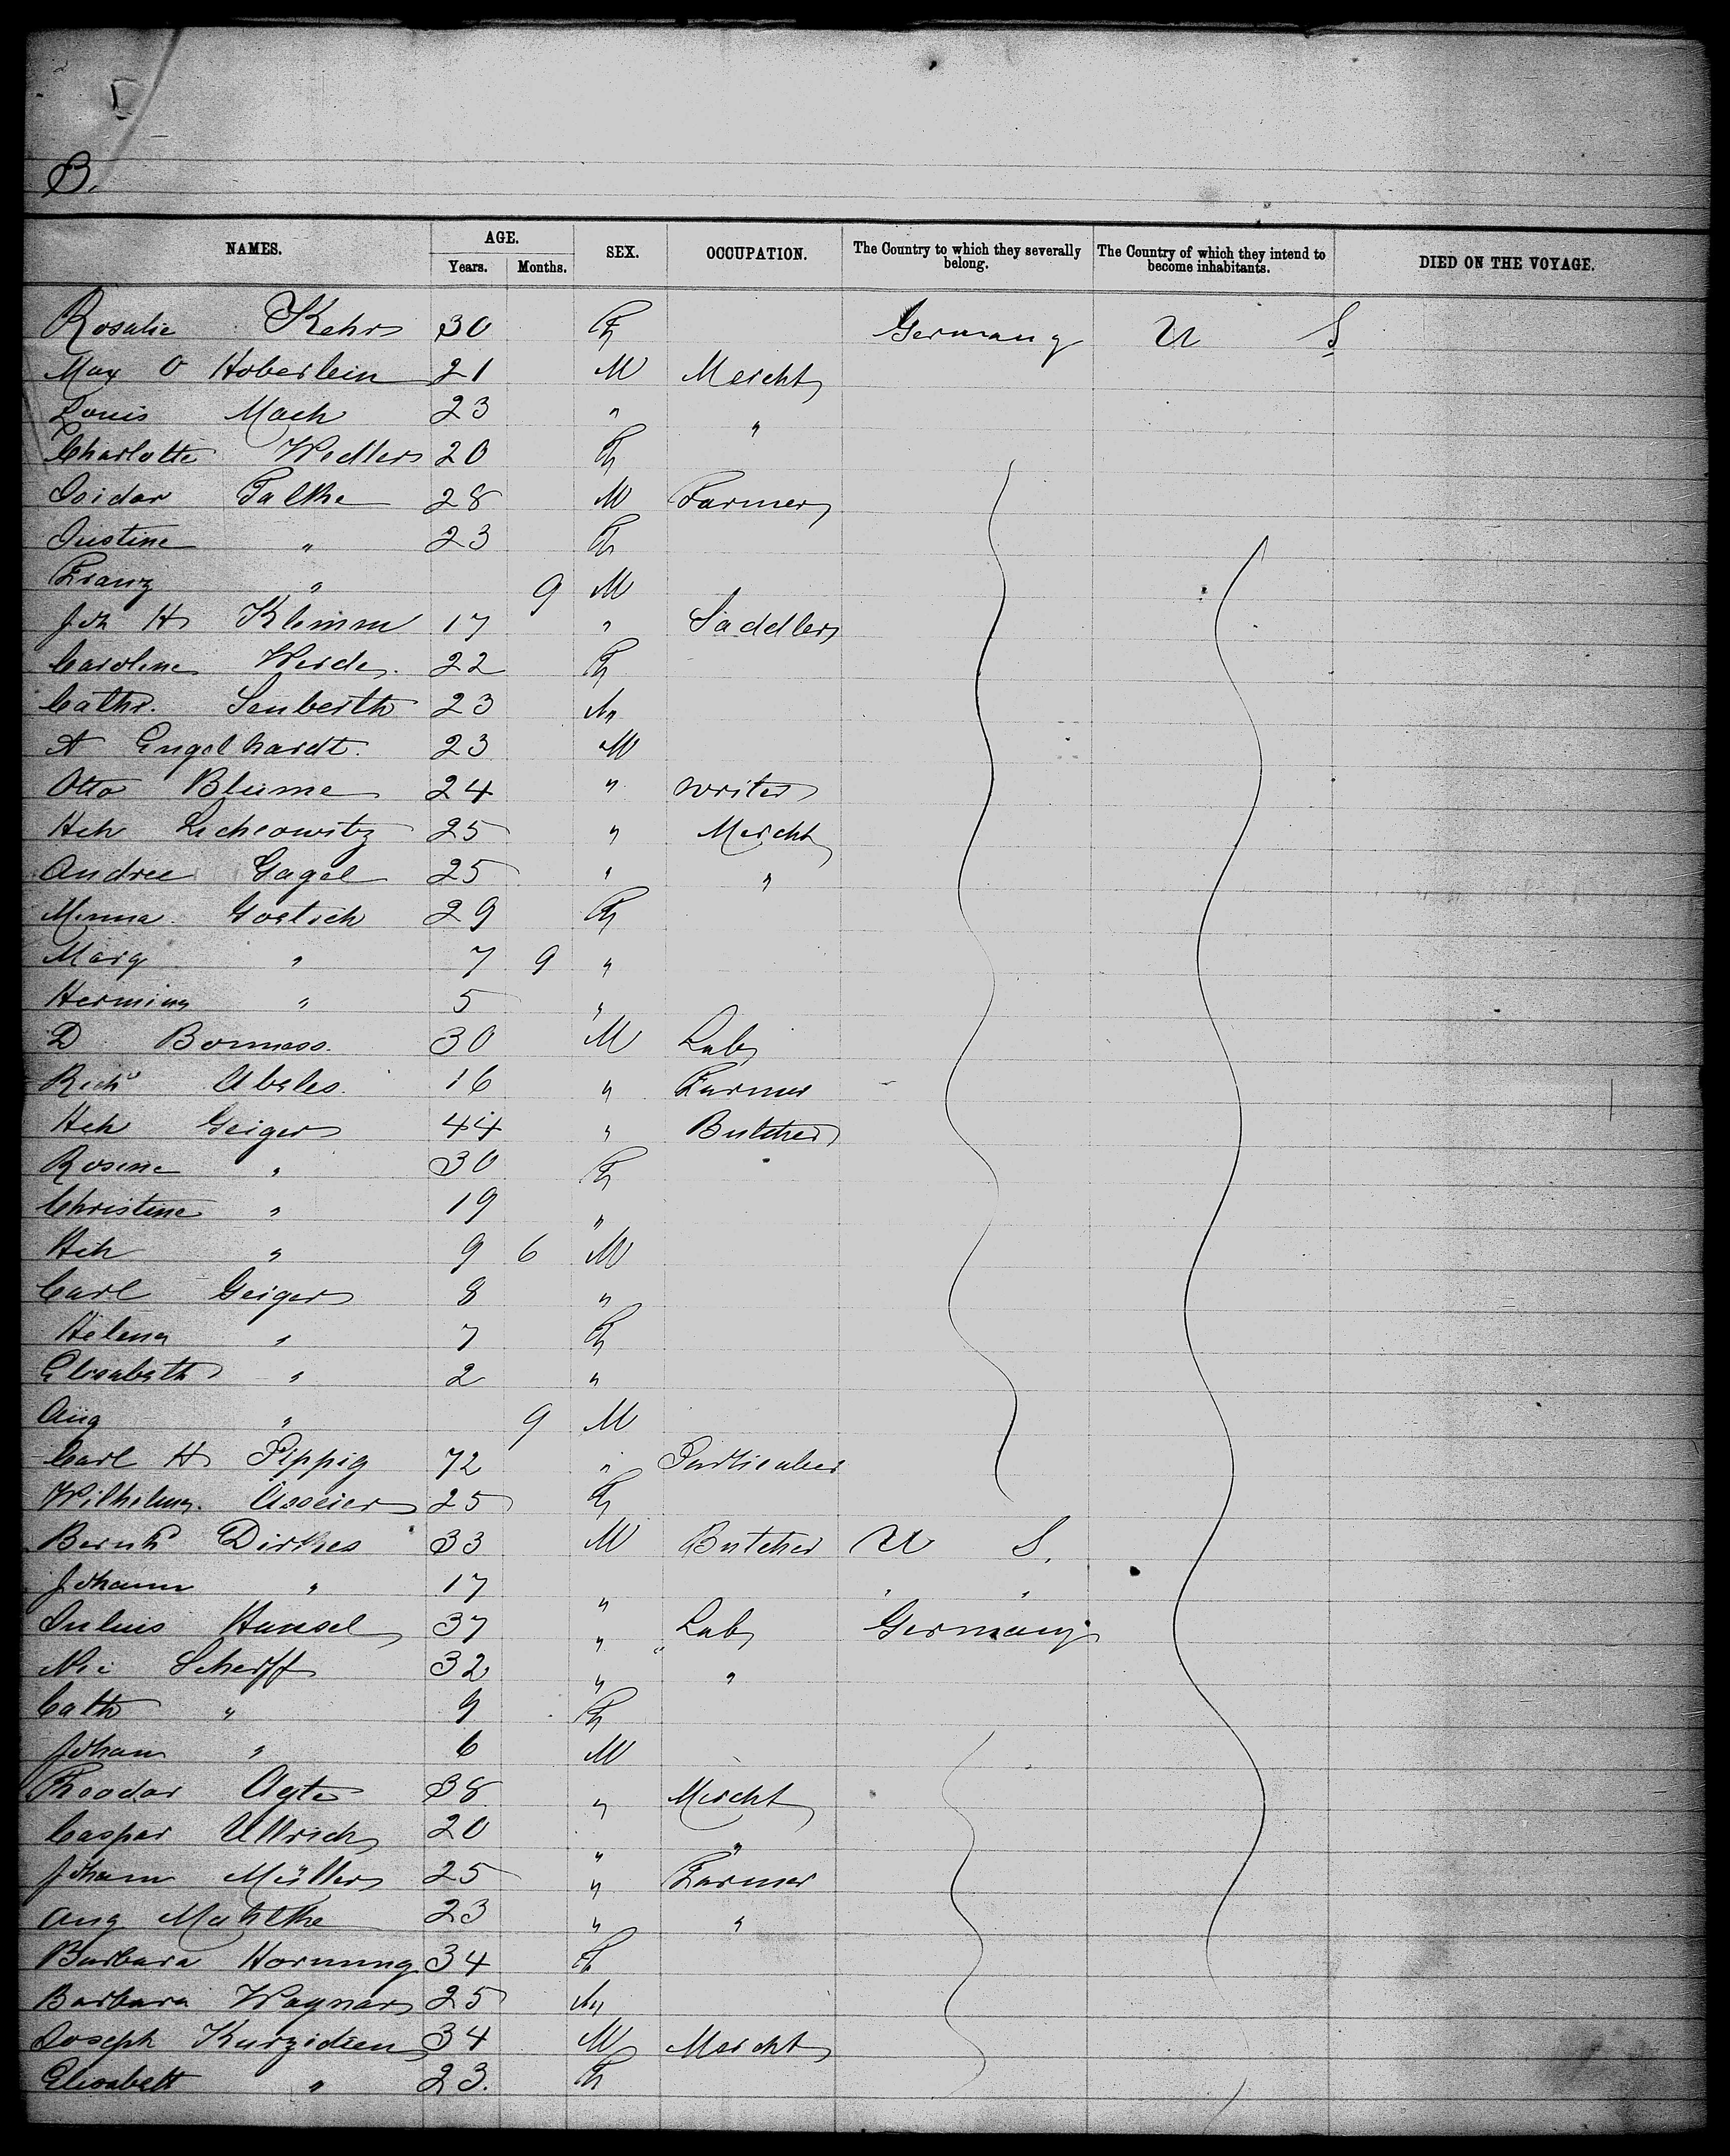 B.
NAMES. AGE. SEX. OCCUPATION. The Country to which they severally belong. The Country of which they intend to become inhabitants. DIED ON THE VOYAGE.
Years. Months.
Rosalie Kehr 30 F Germany U S
Max O Hoberlein 21 M Mercht
Louis Mach 23 " "
Charlotte Wedler 20 F
Isidor Falke 28 M Farmer
Justine " 23 F
Franz " 9 M
Joh H Klemm 17 " Saddler
Caroline Weide 22 F
Cathr. Seuberth 23 "
A Engelhardt. 23 M
Otto Blume 24 " writer
Hch Lechrowitz 25 " Mercht
Andree Gagel 25 " "
Minna Gostich 29 F
Marg " 7 9 "
Hermina " 5 "
D Bonness. 30 M Lab
Richd Abeles. 16 " Farmer
Hch Geiger 44 " Butcher
Rosine " 30 F
Christine " 19 "
Hch " 9 6 M
Carl Geiger 8 "
Helena " 7 F
Elisabeth " 2 "
Aug " 9 M
Carl H Pippig 72 " Particulier
Wilhelm. Asseier 25 F
Bernh Dirkes 33 M Butcher U S.
Johann " 17 " " "
Julius Hansel 37 " Lab Germany
Nic Scherff 32 " "
Cath " 9 F
Johan " 6 M
Theodor Agte 38 " Mercht
Caspar Ullrich 20 " "
Joham Müller 25 " Farmer
Aug Mahlke 23 " "
Barbara Hornung 34 F
Barbara Wagner 25 "
Joseph Kurzidien 34 M Mercht
Elisabett " 23. F